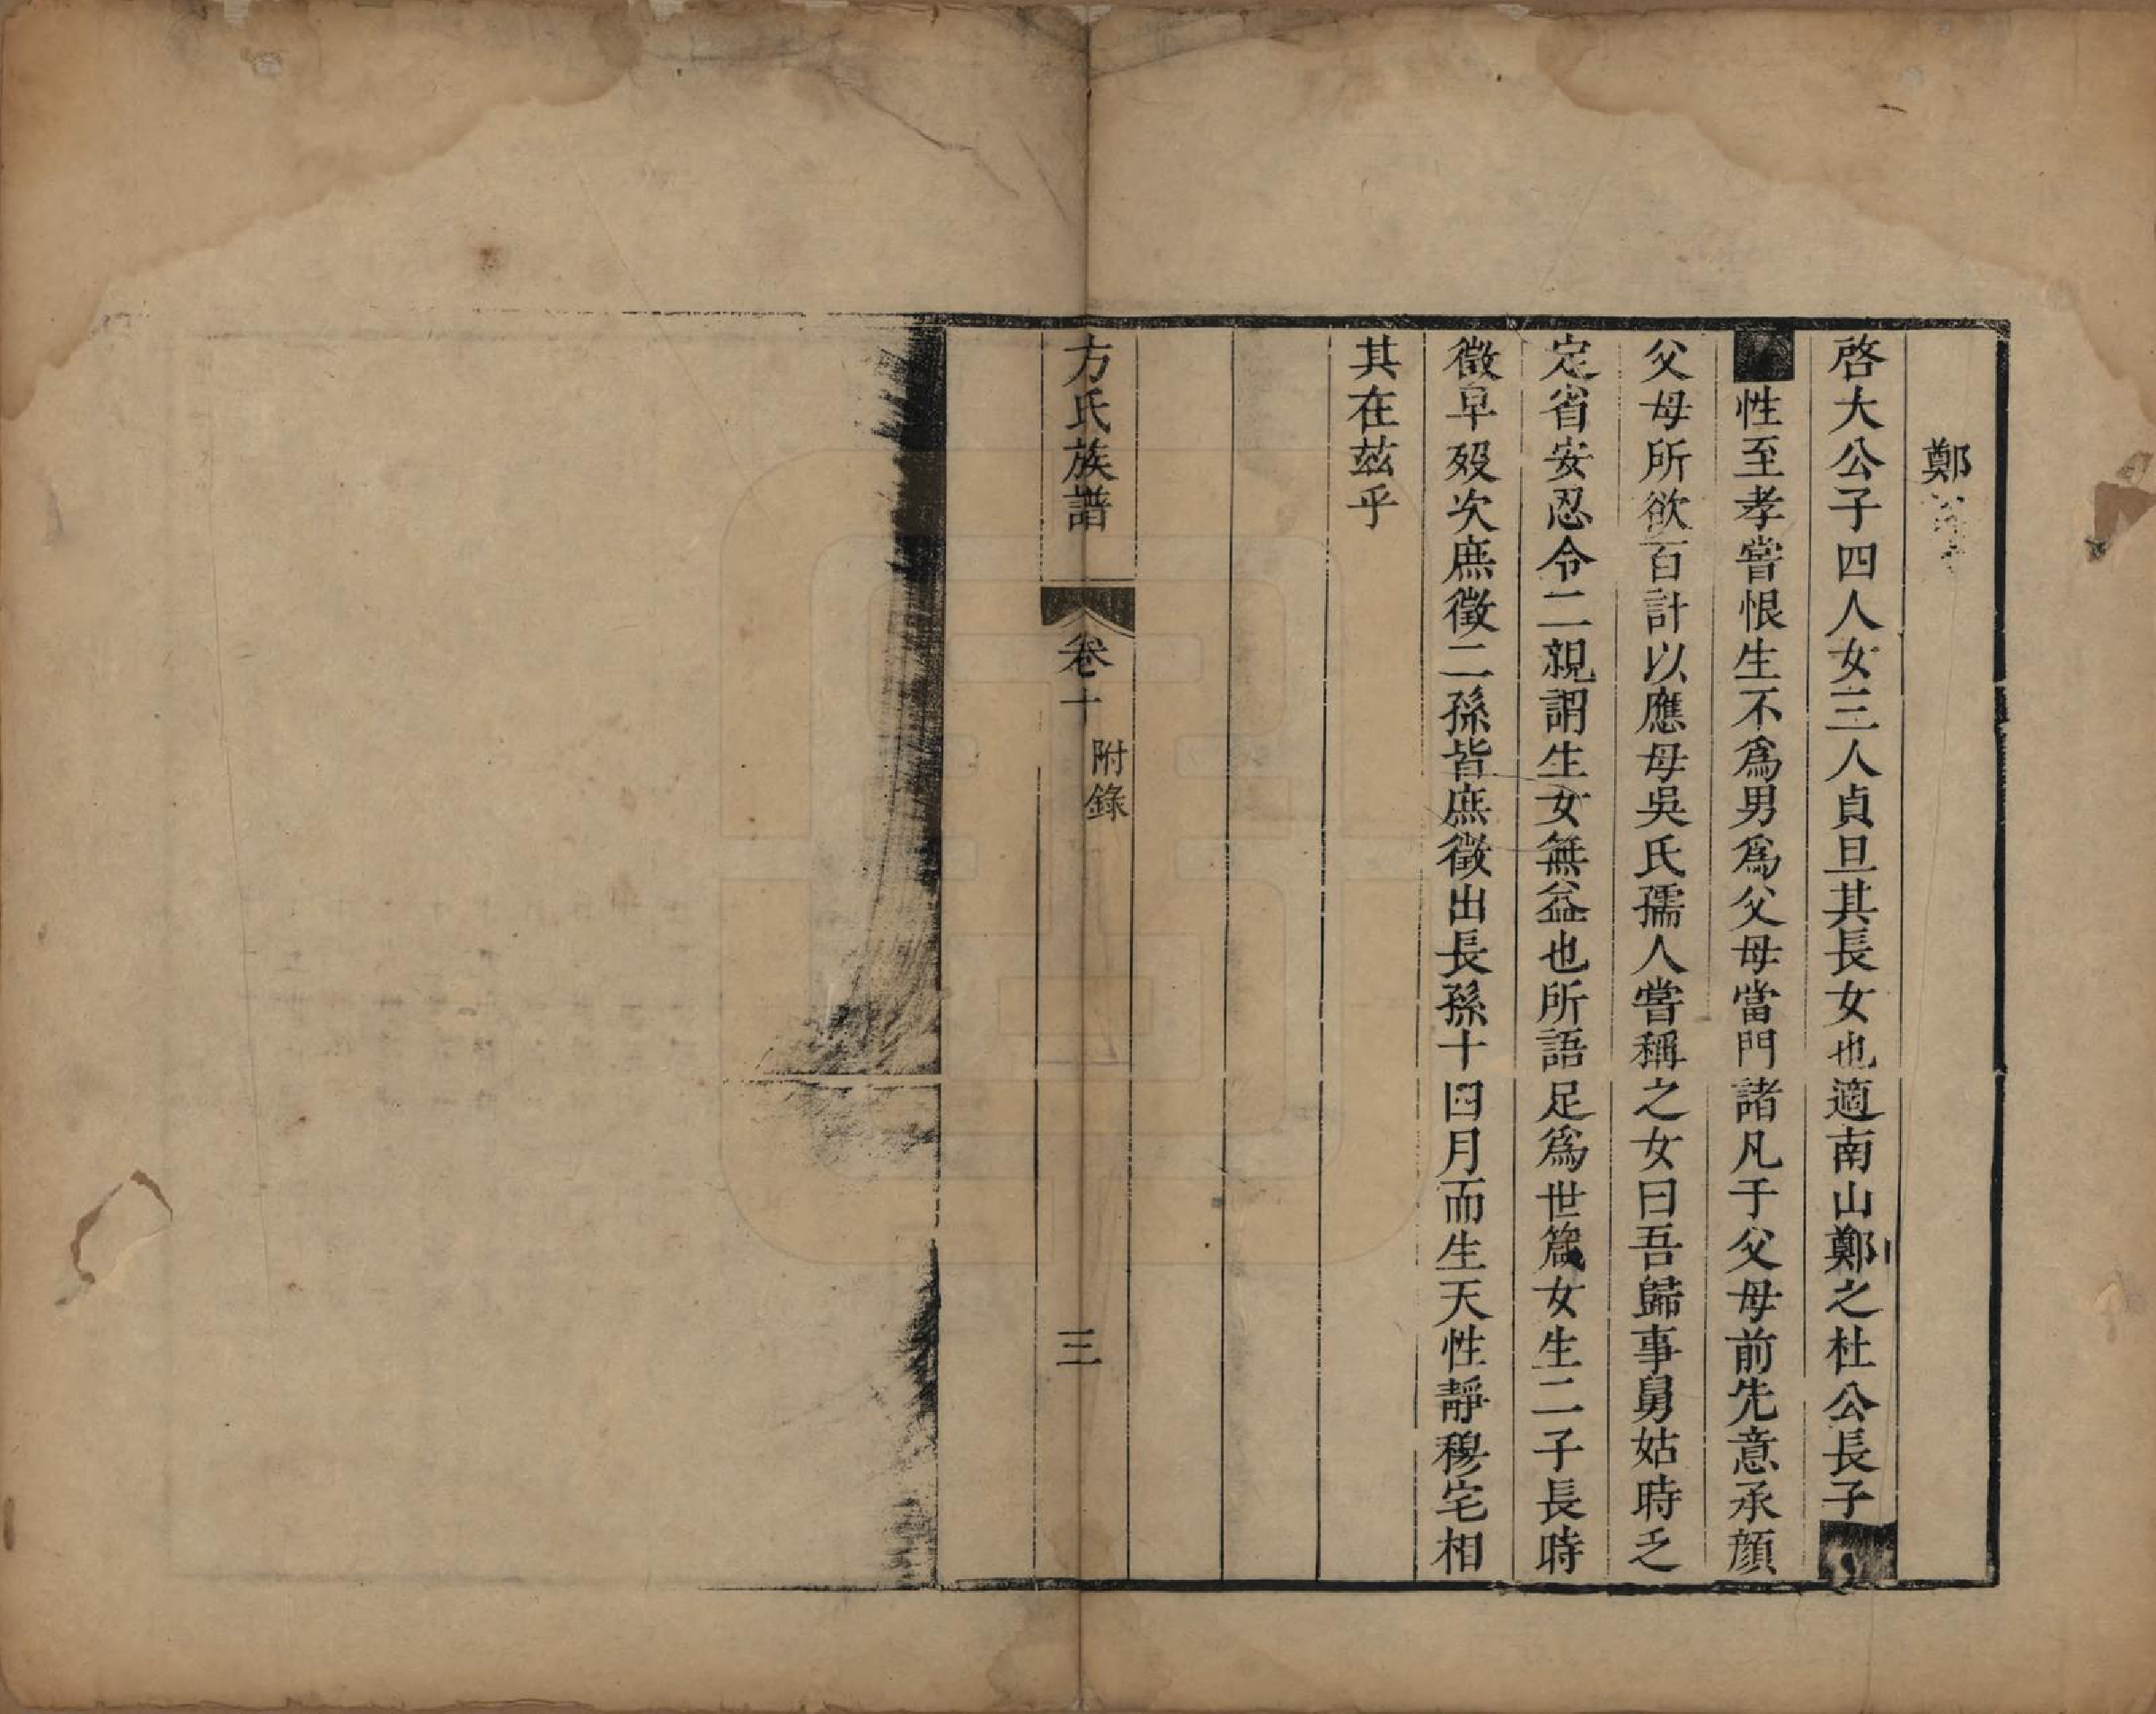 鄭
啓大公子四人女三人貞旦其長女也適南山鄭之杜公長子
性至孝嘗恨生不爲男爲父母當門諸凡于父母前先意承顔
父母所欲百計以應母吳氏孺人嘗稱之女曰吾歸事舅姑時乏
定省安忍令二親謂生女無益也所語足爲世箴女生二子長時
徵早歿次庶徵二孫皆庶徵出長孫十四月而生天性靜穆宅相
其在茲乎
方氏族譜 卷十 附錄 三